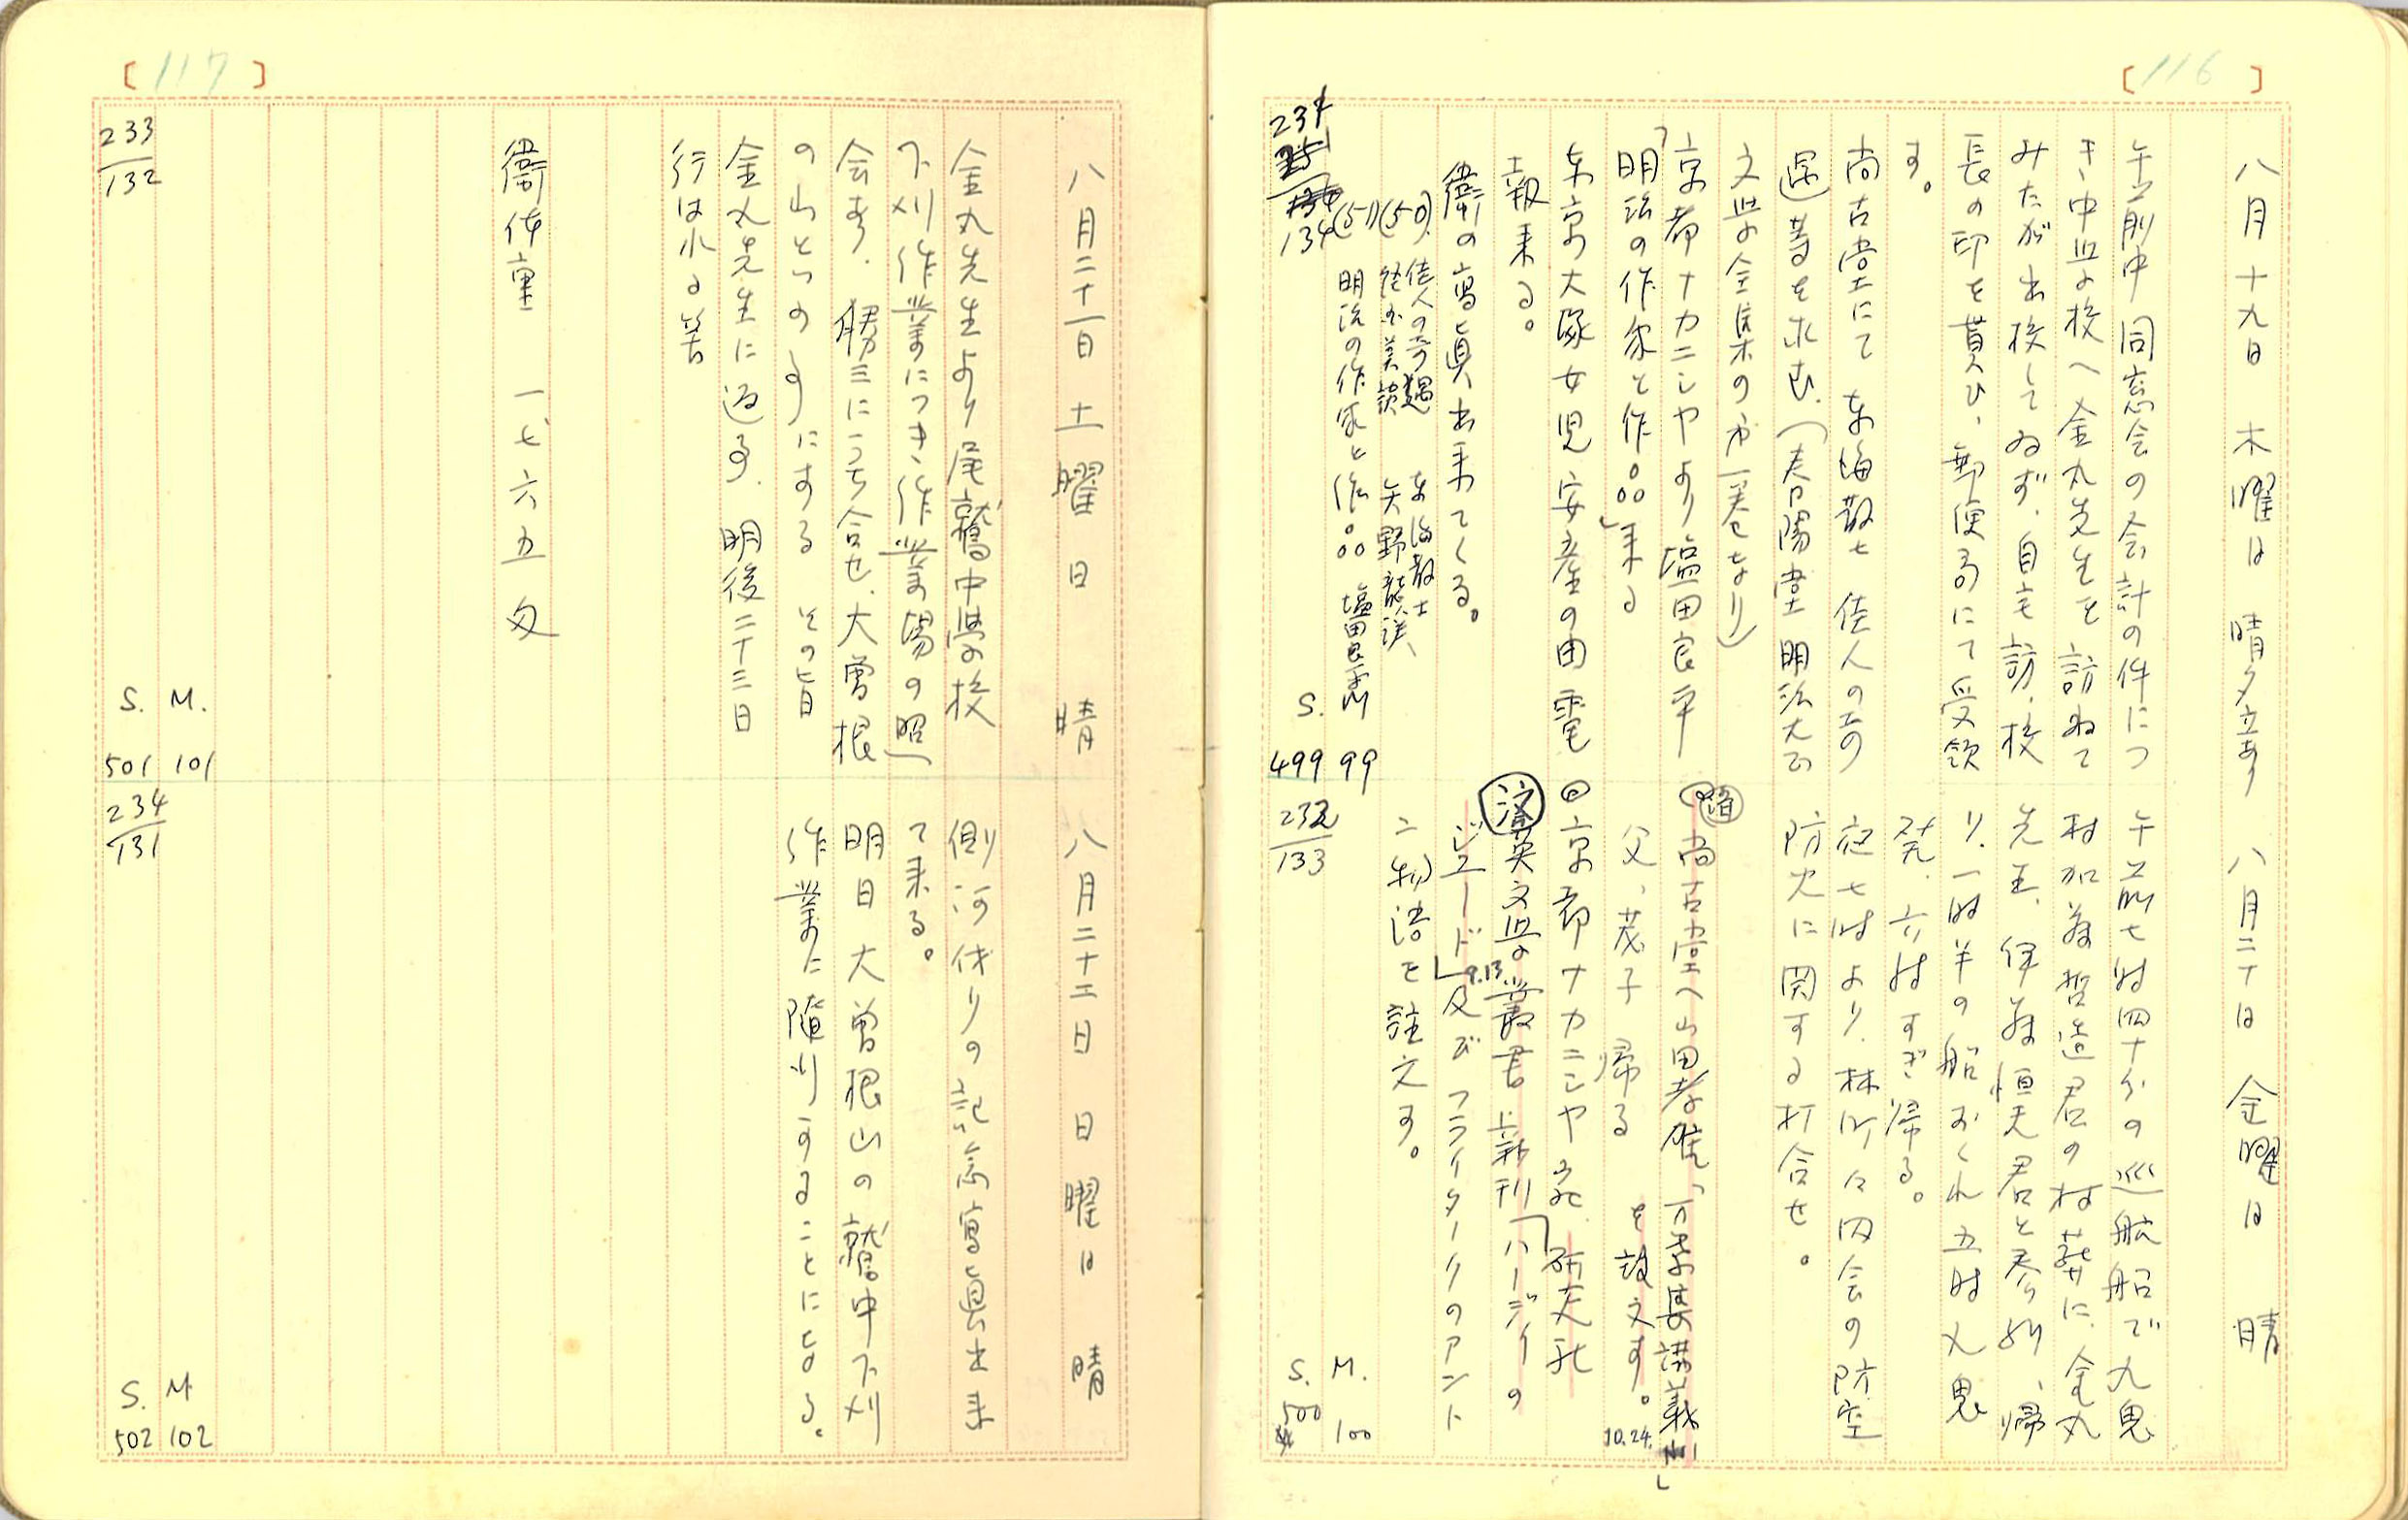 [116]
八月十九日 木曜日 晴夕立あり
午前中 同窓会の会計の件につ
き中学校へ金丸先生を訪ねて
みたが出校してゐず、自宅訪、校
長の印を貰ひ、郵便局にて受領
す。
尚古堂にて 東海散士 佳人の奇
遇等を求む、(春陽堂 明治大正
文学全集の第一巻なり)
京都ナカニシヤより塩田良平
「明治の作家と作品」来る
東京大塚女児安産の由 電
報来る。
衛の寫真出来てくる。
(50) 佳人の奇遇 東海散士
経国美談 矢野龍渓
(51) 明治の作家と作品 塩田良平
231
134
S.
499 99
八月二十日 金曜日 晴
午前七時四十分の巡航船で九鬼
村加藤哲造君の村葬に、金丸
先生、伊藤恒夫君と参列、帰
り、一時半の船おくれ五時九鬼
発、六時すぎ帰る。
夜七時より、林町々内会の防空
防火に関する打合せ。
尚古堂へ山田孝雄「万葉集講義」
を註文す。
10.24.
父、茂子 帰る
京都ナカニシヤ宛 研究社
英文学叢書 新刊「ハーディの
ジュード」及び フライタークのアント
9.13
ニ物語を註文す。
232
133
S. M.
500 100
[117]
八月二十一日 土曜日 晴
金丸先生より尾鷲中学校
下刈作業につき、作業場の照
会あり、勝三にうち合せ、大曽根
の山といふ事にする その旨
金丸先生に返事、明後二十三日
行はれる筈
衛体重 一七六五匁
233
132
S. M.
501 101
八月二十二日 日曜日 晴
側河伐りの記念寫真出来
て来る。
明日大曽根山の鷲中下刈
作業に随行することになる。
234
131
S. M
502 102